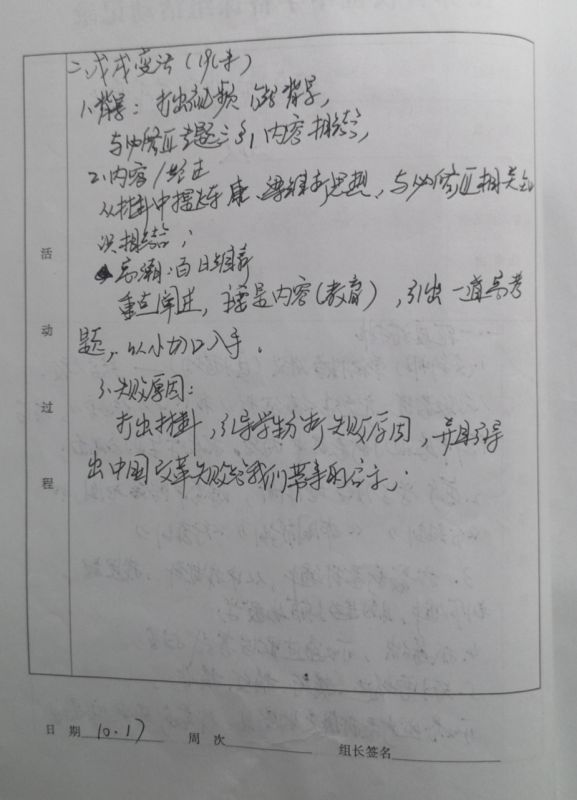 二、戊戌变法(1化半)
1、背景：打出视频 分析背景，
与必修正专题三多1 内容相结合，
2、内容/经过
从挂卦中提炼 康、梁维新思想，与必修正相关知
识相结合；
高潮：百日维新
重点阐述，主要是内容(教育)，引出一道高考
题，以小切口入手。
3、失败原因：
打出挂卦，引导学生分析失败原因，并且引导
出中国变革失败给我们带来的启示。
活
动
过
程
日 期 10.17 周 次 组长签名